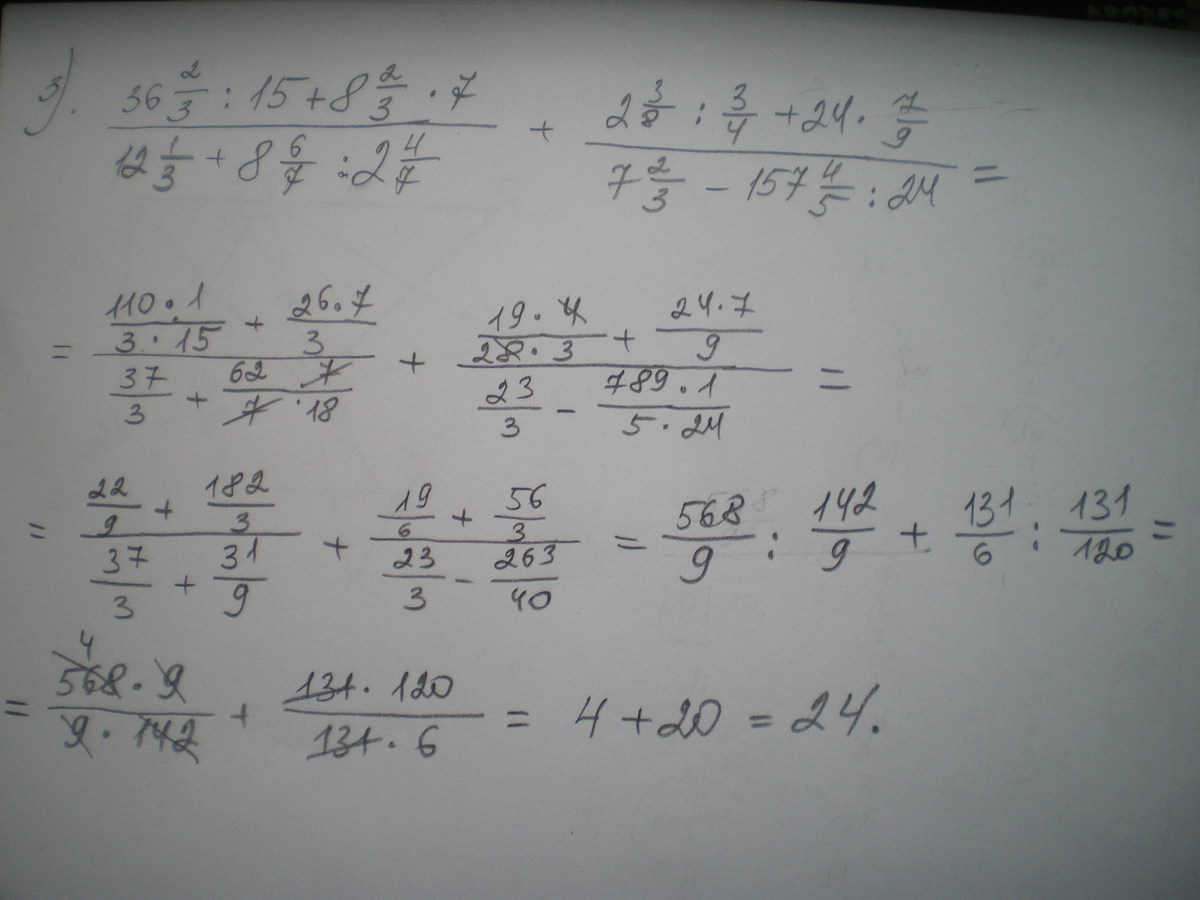 3). (36 2/3 : 15 + 8 2/3 · 7)/(12 1/3 + 8 6/7 : 2 4/7) + (2 3/8 : 3/4 + 24 · 7/9)/(7 2/3 - 157 4/5 : 24) =
= ((110 · 1)/(3 · 15) + (26 · 7)/3)/(37/3 + (62 · 7)/(7 · 18)) + ((19 · 4)/(28 · 3) + (24 · 7)/9)/(23/3 - (789 · 1)/(5 · 24)) =
= (22/9 + 182/3)/(37/3 + 31/9) + (19/6 + 56/3)/(23/3 - 263/40) = 568/9 : 142/9 + 131/6 : 131/120 =
= (4 568 · 9)/(9 · 142) + (131 · 120)/(131 · 6) = 4 + 20 = 24.